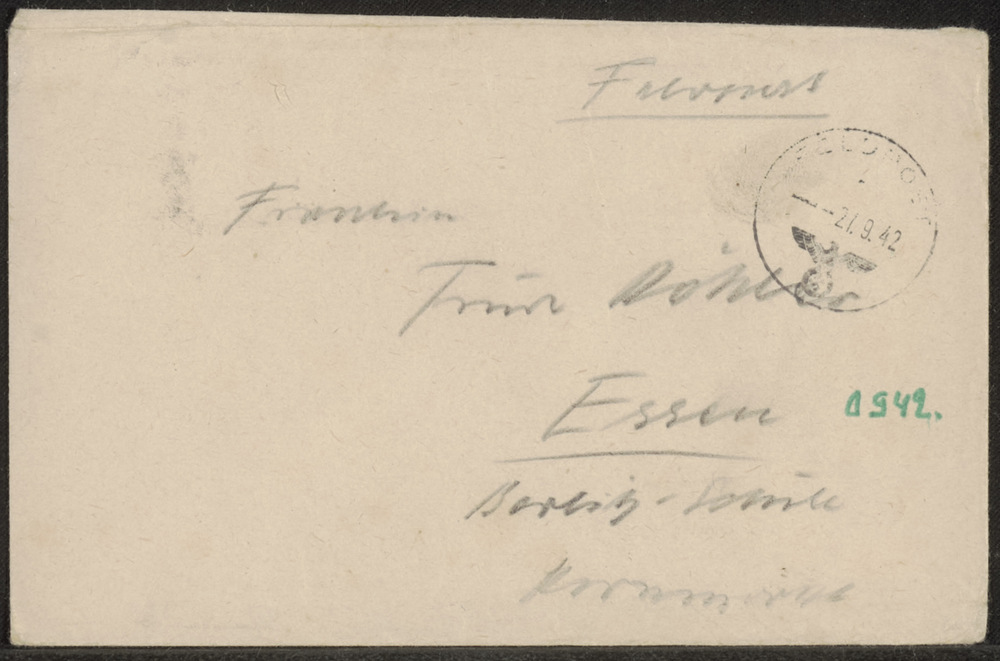 Feldpost
FELDPOST
-27.9.42
Fräulein
Trude Köhler
Essen
1942.
Berlitz-Schule